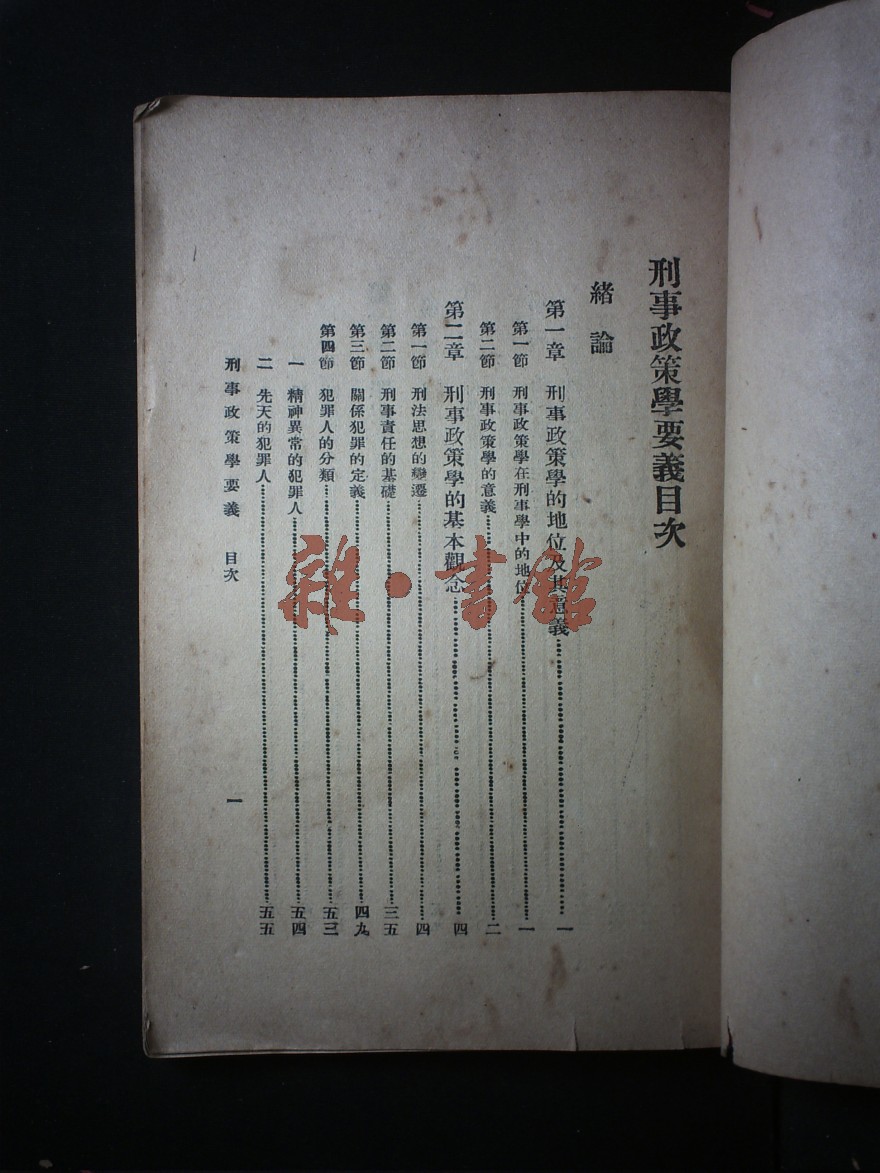 刑事政策學要義目次
緒論
第一章 刑事政策學的地位及其意義 一
第一節 刑事政策學在刑事學中的地位 一
第二節 刑事政策學的意義 二
第二章 刑事政策學的基本觀念 四
第一節 刑法思想的變遷 四
第二節 刑事責任的基礎 三五
第三節 關係犯罪的定義 四九
第四節 犯罪人的分類 五三
一 精神異常的犯罪人 五四
二 先天的犯罪人 五五
刑事政策學要義 目次 一
雜·書館